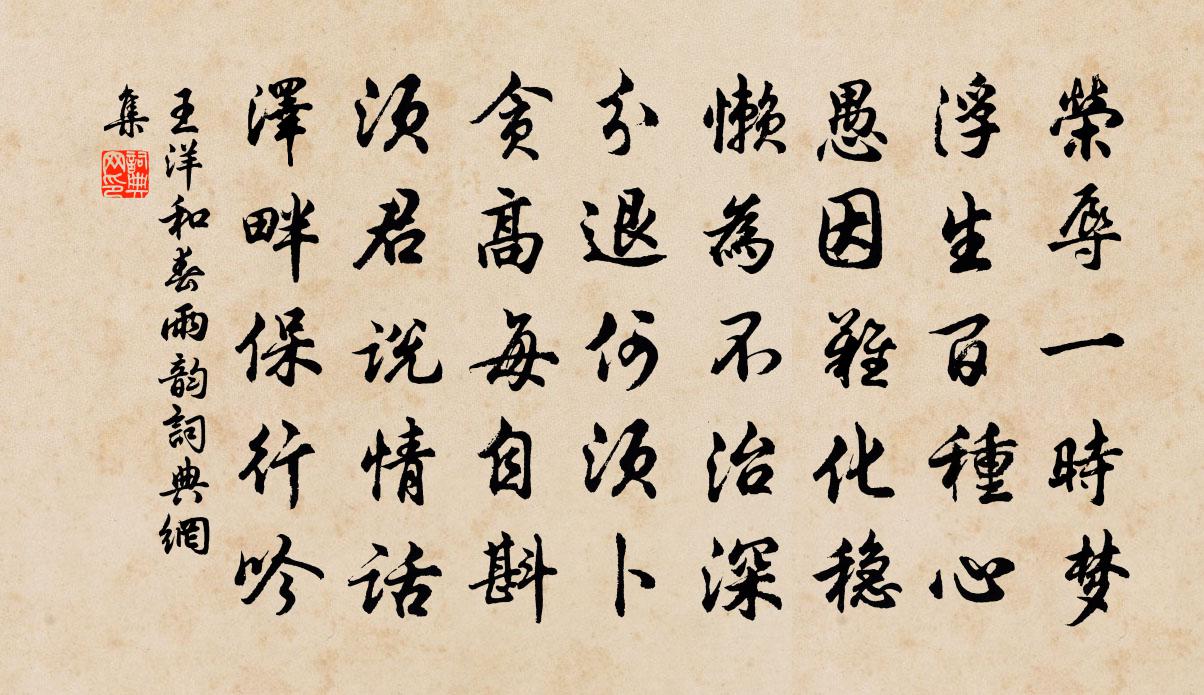 榮辱一時梦
浮生百種心
愚因難化稳
懒為不治深
分退何須卜
贪高每自斟
須君説情話
澤畔保行吟
王洋和春雨韵詞典網
集
詞典
网印